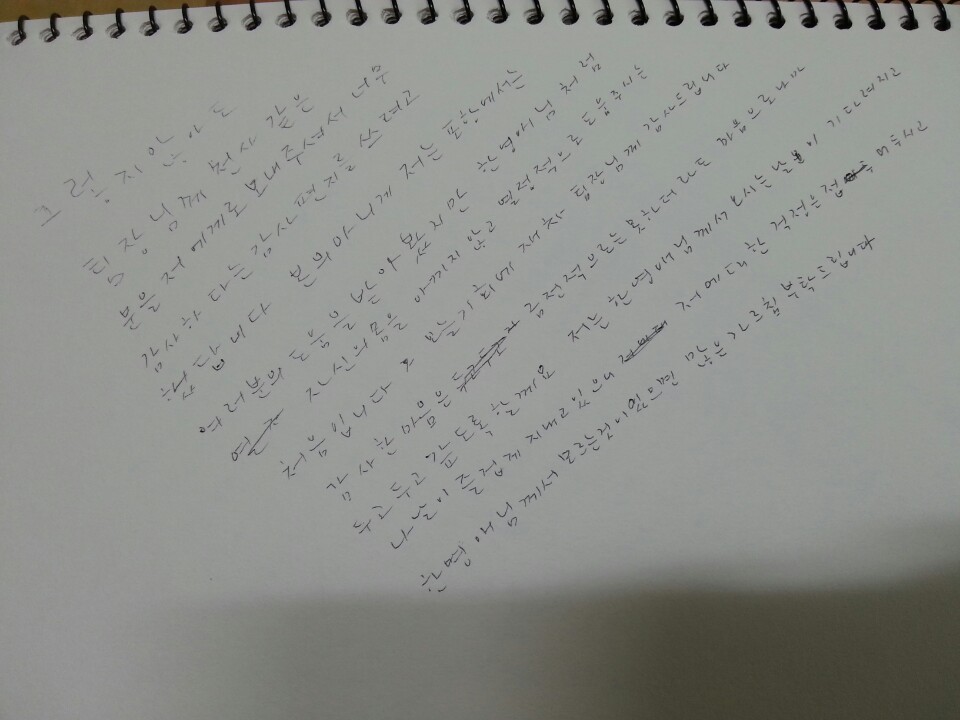 그렇지 않아도
팀장님께 천사 같은
분을 저에게로 보내주셔서 너무
감사하다는 감사편지를 쓰려고
했답니다 본의아니게 저는 포항에서는
여러분의 도움을 받아 봤지만 한영애님처럼
자신의 몸을 아끼지 않고 열정적으로 도움주시는
처음입니다 오늘 기회에 재차 팀장님께 감사드립니다
감사한 마음은 금전적으로는 못하더라도 마음으로나마
두고두고 갚도록 할께요 저는 한영애님께서 오시는 날이 기다려지고
나날이 즐겁게 지내고 있으니 저에 대한 걱정은 접어두시고
한영애님께서 모르는것이 있으면 많은 가르침 부탁드립니다